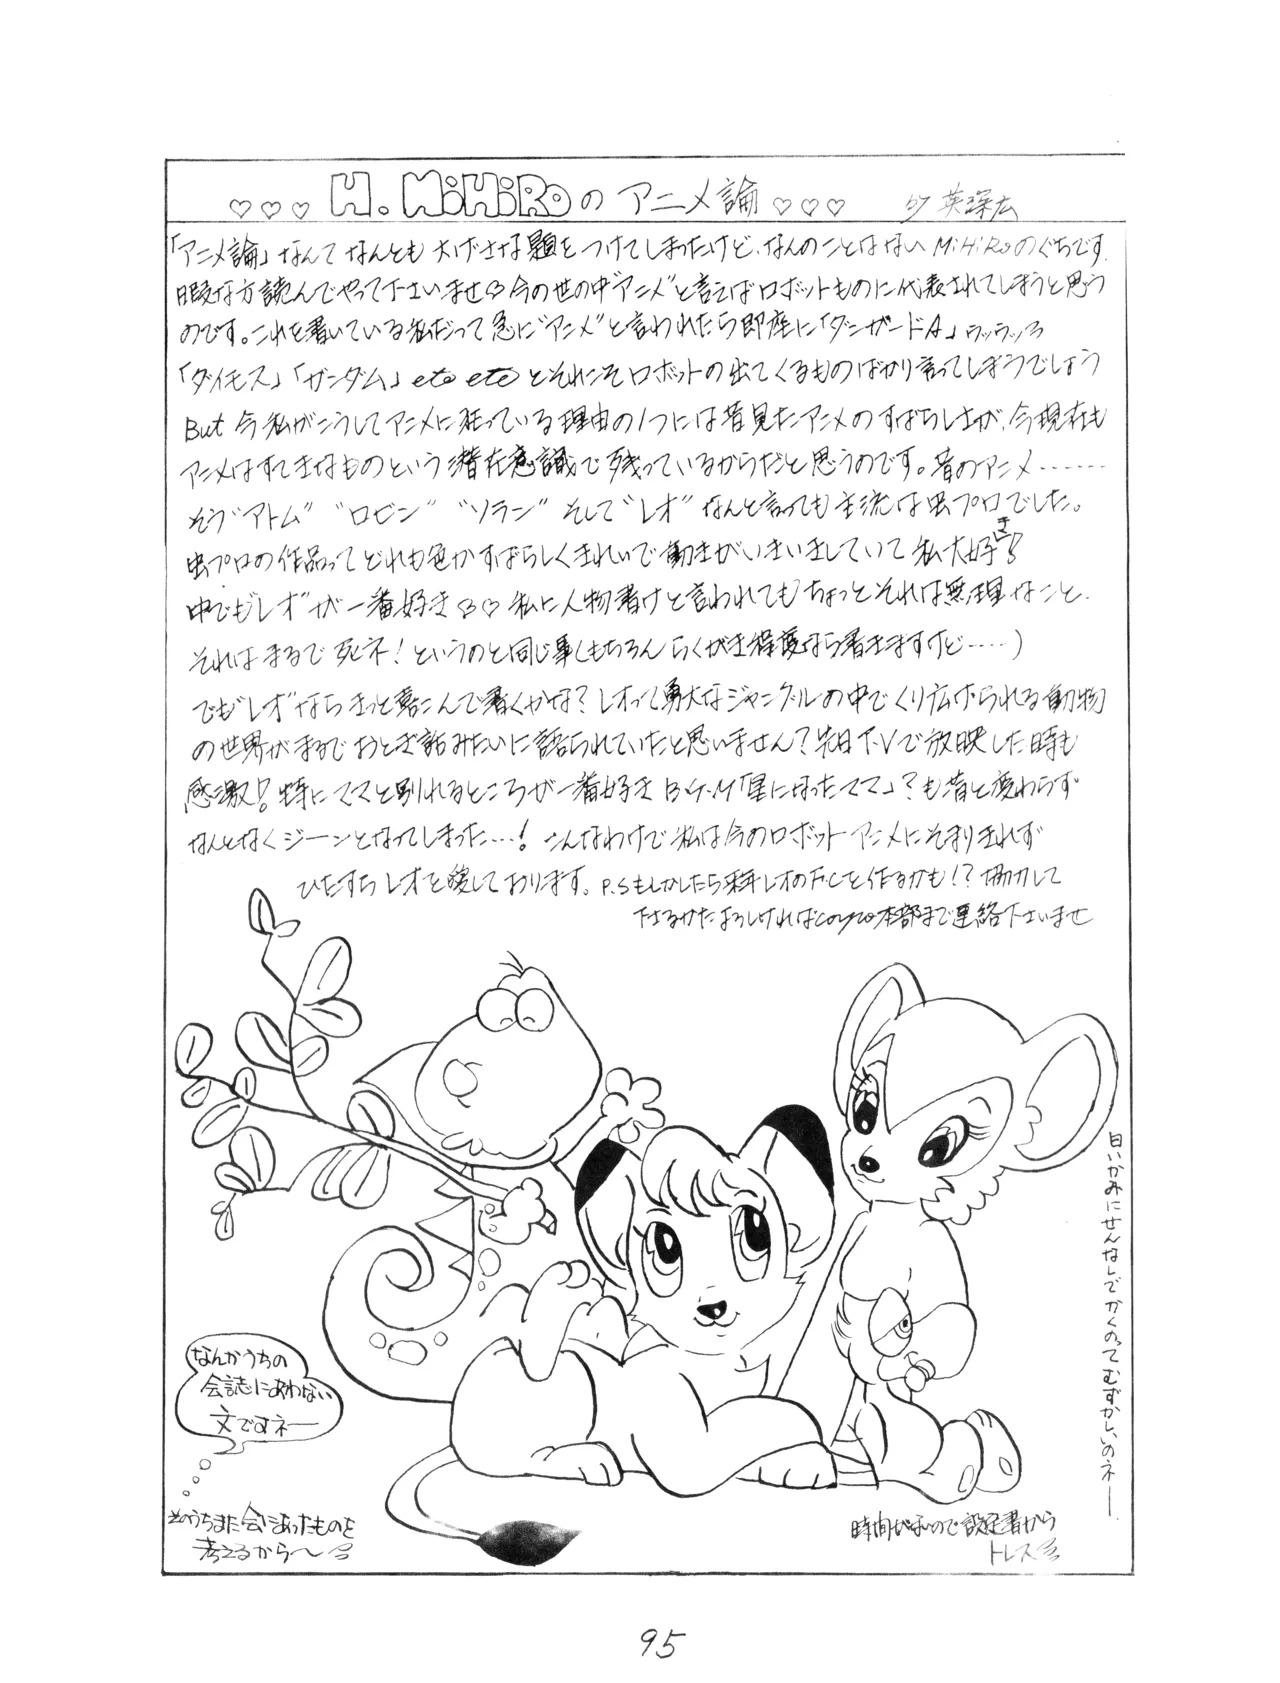 ♡♡♡ H. MiHiRoのアニメ論 ♡♡♡ by 英深広
「アニメ論」なんてなんとも大げさな題をつけてしまったけど、なんのことはないMiHiRoのぐちです.
暇な方読んでやって下さいませ♡今の世の中“アニメ”と言えばロボットものに代表されてしまうと思う
のです。これを書いている私だって急に“アニメ”と言われたら即座に「ダンガードA」
「ダイモス」「ガンダム」etc etcとそれこそロボットの出てくるものばかり言ってしまうでしょう
But 今私がこうしてアニメに狂っている理由の1つには昔見たアニメのすばらしさが、今現在も
アニメはすてきなものという潜在意識で残っているからだと思うのです。昔のアニメ……
そう“アトム”“ロビン”“ソラン”そして“レオ”なんと言っても主流は虫プロでした。
虫プロの作品ってどれも色がすばらしくきれいで動きがいきいきしていて私大好き!
中でも“レオ”が一番好き♡♡私に人物書けと言われてもちょっとそれは無理なこと、
それはまるで死ネ!というのと同じ事(もちろんらくがき程度なら書きますけど……)
でも“レオ”ならきっと喜こんで書くかな?レオって勇大なジャングルの中でくり広げられる動物
の世界がまるでおとぎ話みたいに語られていたと思いません?先日T.Vで放映した時も
感激!特にママと別れるところが一番好きB.G.M「星になったママ」?も昔と変わらず
なんとなくジーンとなってしまった…!こんなわけで私は今のロボットアニメにそまりきれず
ひたすらレオを愛しております。P.Sもしかしたら来年レオのF.Cを作るかも!?協力して
下さるかたよろしければ本部まで連絡下さいませ
白いかみにせんなしでかくのってむずかしいのネー
なんかうちの
会誌にあわない
文ですネー
そのうちまた会にあったものを
考えるから～
時間がないので設定書から
トレス
95